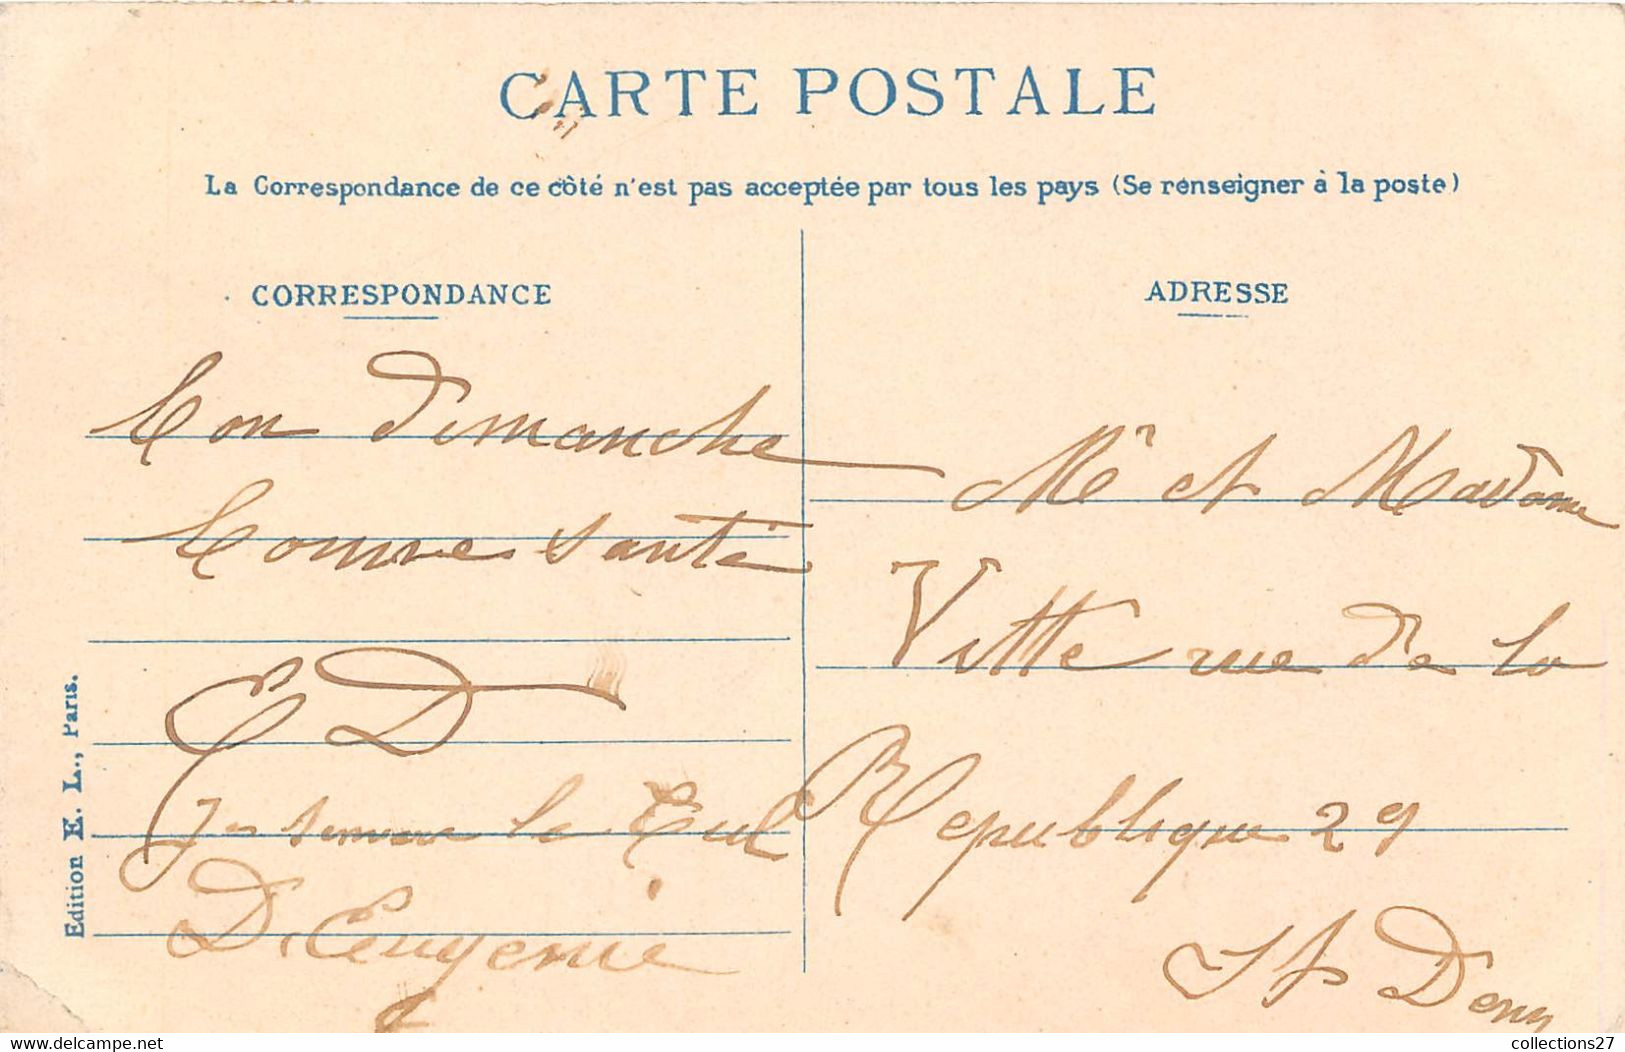 CARTE POSTALE
La Correspondance de ce côté n'est pas acceptée par tous les pays (Se renseigner à la poste)
CORRESPONDANCE
Bon dimanche
Bonne santé
ED
le
D'Eugenie
ADRESSE
Mr et Madame
Vitte rue de la
Republique 29
St Deny
Edition E. L., Paris.
delcampe.net
collections27